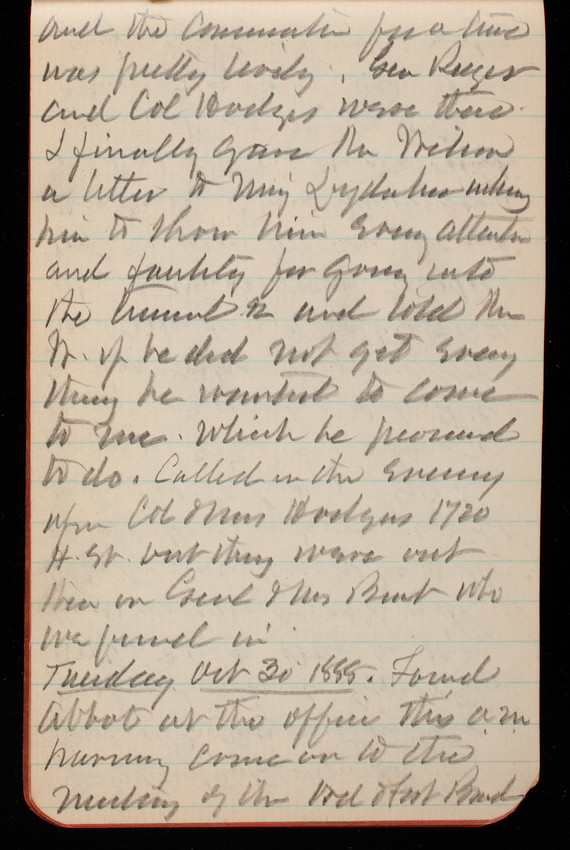 and the conversation for a time
was pretty lively. Gen Ruger
and Col Hodges were there.
I finally gave Mr Wilson
a letter to Maj Lydecker asking
him to show him every attention
and facility for going into
the tunnel & and told Mr
W. if he did not get every
thing he wanted to come
to me. Which he promised
to do. Called in the evening
upon Col & Mrs Hodges 1720
H. St. but they were out
then on Genl & Mrs Benet who
we found in
Tuesday Oct 30 1888. Found
Abbot at the office this a.m.
having come on to the
meeting of the Ord & Fort Board